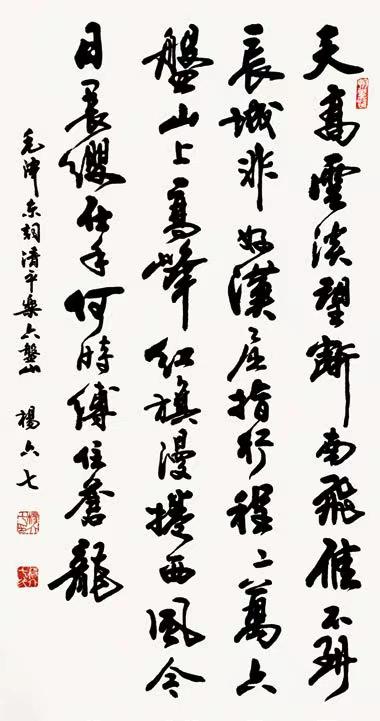 天高雲淡望斷南飛雁不到
長城非好漢屈指行程二萬六
盤山上高峰紅旗漫捲西風今
日長纓在手何時縛住蒼龍
毛澤東詞清平樂六盤山 楊六七